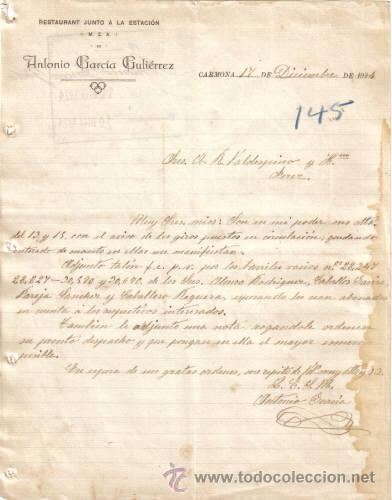 RESTAURANT JUNTO A LA ESTACIÓN
M. Z. A.
DE
Antonio García Gutiérrez
CARMONA 17 DE Diciembre DE 1924
145
Sres. A. R. Valdespino y Hno
Jerez.
Muy Sres. mios: Son en mi poder sus attas.
del 13 y 15, con el aviso de los giros puestos en circulación, quedando
enterado de cuanto en ellas me manifiestan.
Adjunto talón f.c. p.v. por los barriles vacios nº 22,247
28,227-30,580 y 30,690. de los Sres. Alonso Rodriguez,
Pareja Sanchez y Caballero Noguera, esperando los sean abonados
en cuenta a los respectivos interesados.
Tambien le adjunto una nota rogandole ordenen
su pronto despacho y que pongan en ella el mayor esmero
posible.
En espera de sus gratas ordenes, me repito de Vd. muy atto y s.s.
Q. E. S. M.
Antonio García
todocoleccion
www.todocoleccion.net